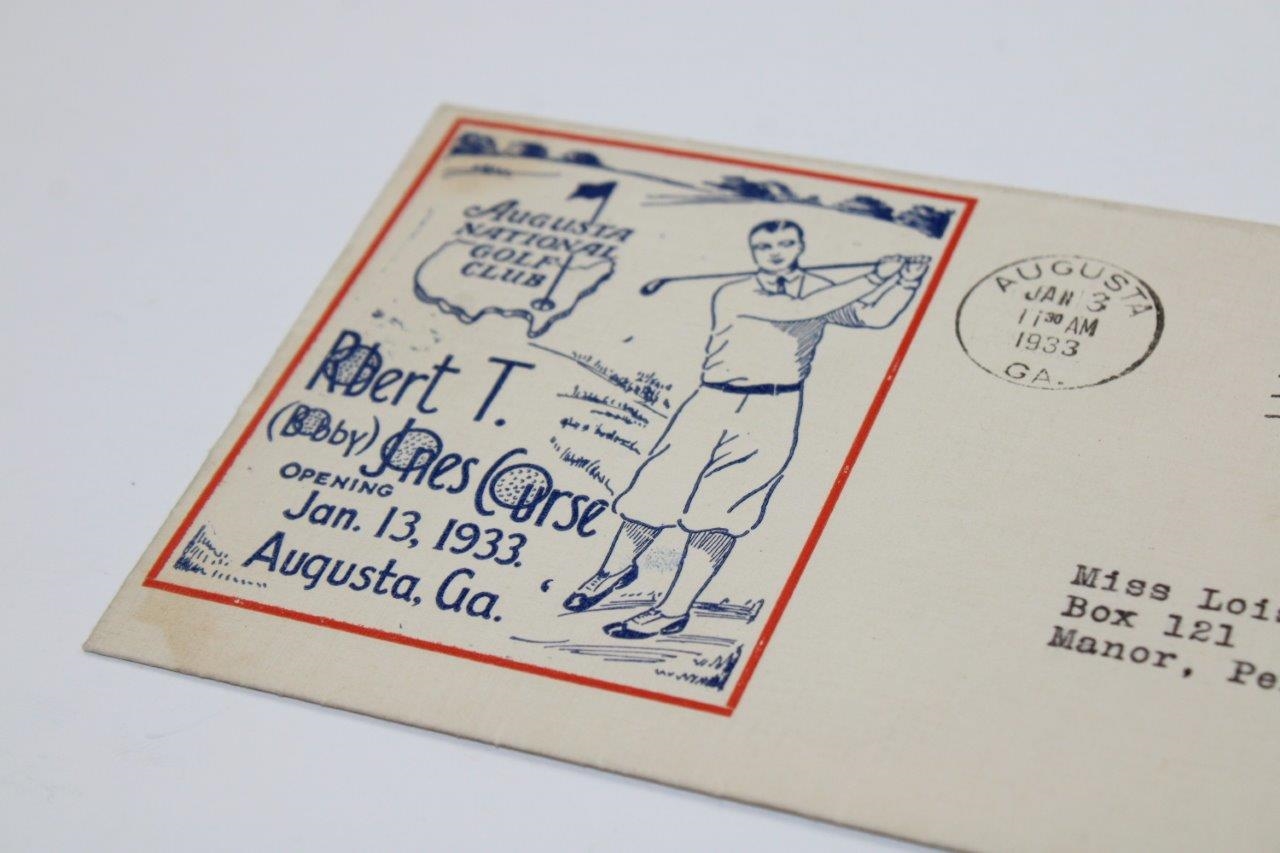 AUGUSTA
NATIONAL
GOLF
CLUB
Robert T.
(Bobby) Jones Course
OPENING
Jan. 13, 1933.
Augusta, Ga.
AUGUSTA
JAN 3
11 30 AM
1933
GA.
Miss Lois
Box 121
Manor, Pe